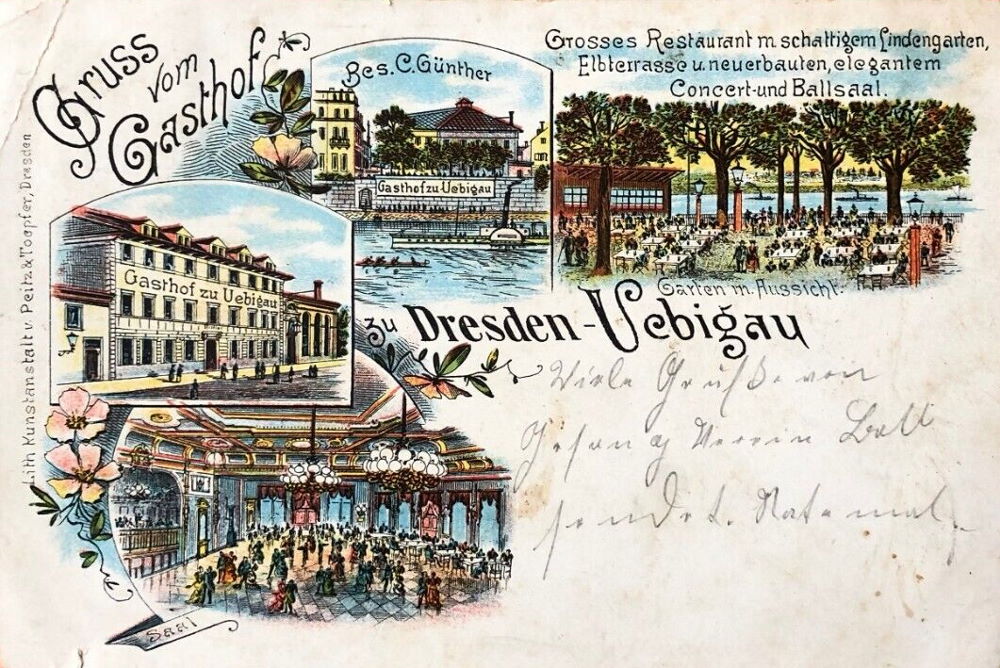 Gruss
vom
Gasthof
Bes. C. Günther
Gasthof zu Uebigau
Grosses Restaurant m. schattigem Lindengarten,
Elbterrasse u. neuerbauten, elegantem
Concert-und Ballsaal.
Garten m. Aussicht.
Gasthof zu Uebigau
zu Dresden-Uebigau
Viele Grüße von
Gesang Verein Ball
sendet.
Saal
Lith. Kunstanstalt v. Peitz & Toepfer, Dresden